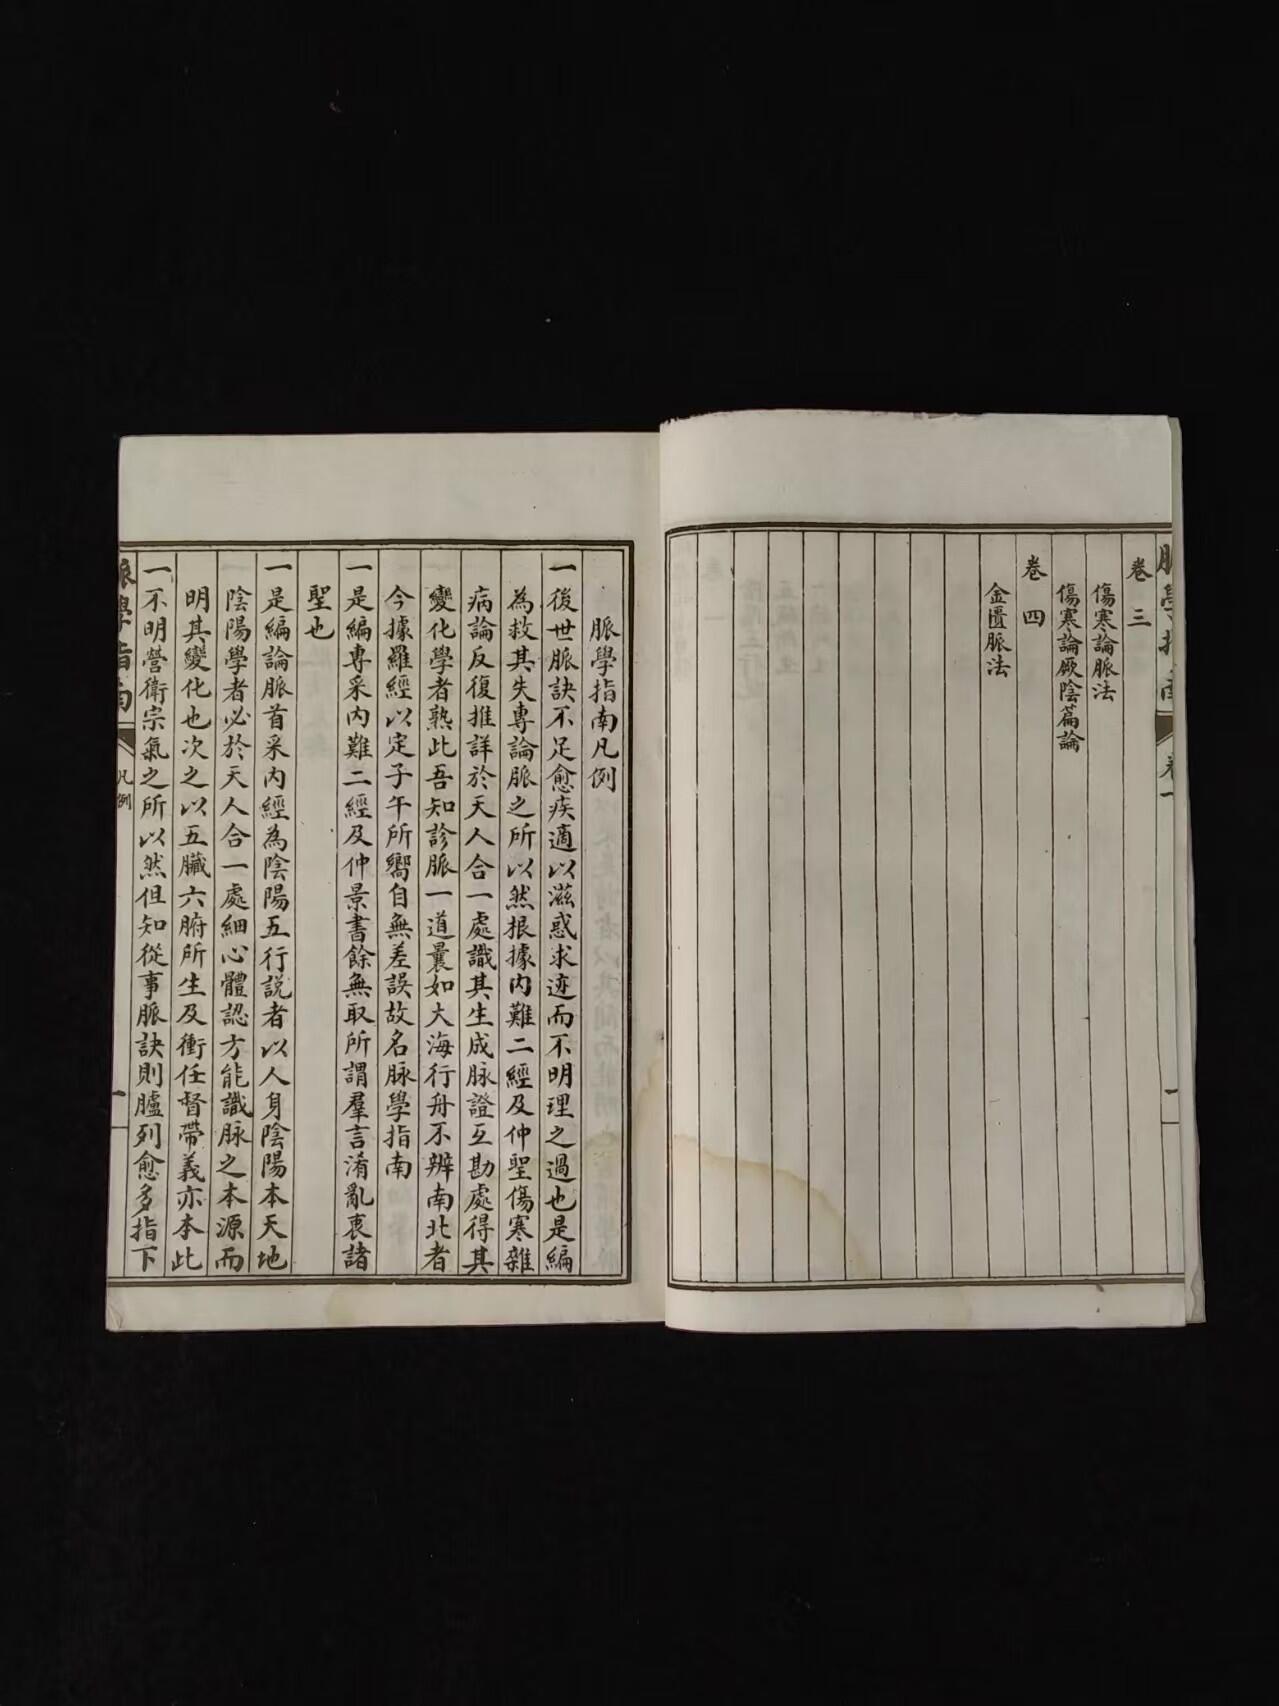 脈學指南
卷一
一
卷三
傷寒論脈法
傷寒論厥陰篇論
卷四
金匱脈法
脈學指南凡例
一後世脈訣不足愈疾適以滋惑求迹而不明理之過也是編
為救其失專論脈之所以然根據内難二經及仲聖傷寒雜
病論反復推詳於天人合一處識其生成脉證互勘處得其
變化學者熟此吾知診脈一道曩如大海行舟不辨南北者
今據羅經以定子午所嚮自無差誤故名脉學指南
一是編專采内難二經及仲景書餘無取所謂羣言淆亂衷諸
聖也
一是編論脈首采内經為陰陽五行説者以人身陰陽本天地
陰陽學者必於天人合一處細心體認方能識脉之本源而
明其變化也次之以五臟六腑所生及衝任督帶義亦本此
一不明營衛宗氣之所以然但知從事脈訣則臚列愈多指下
脈學指南
凡例
一